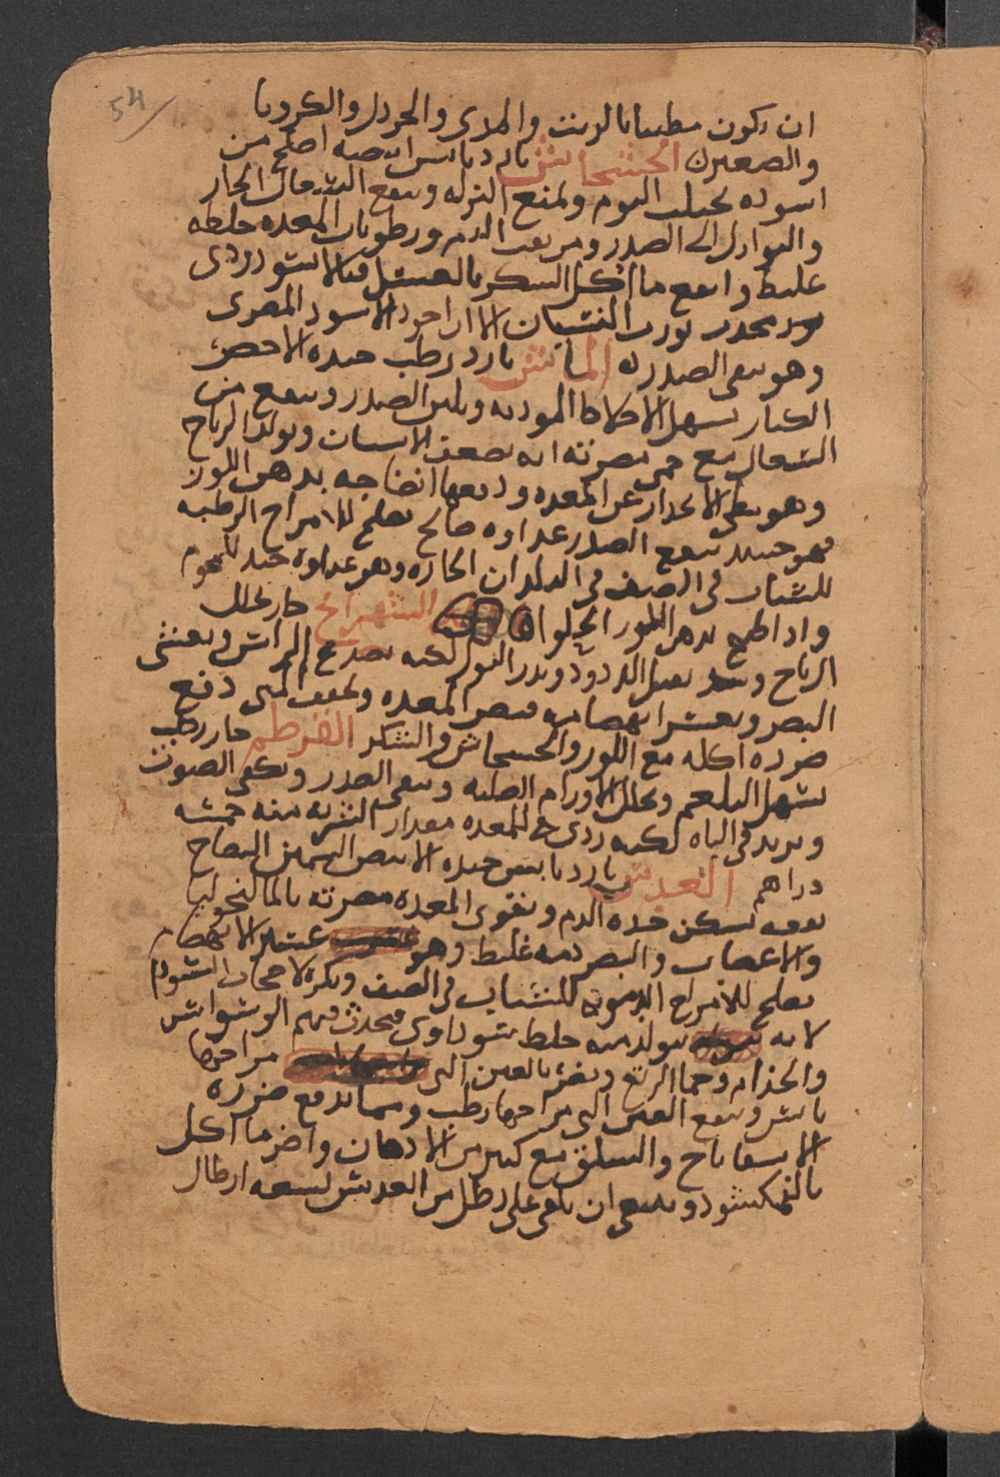 54
ان يكون مطيبا بالزيت والمرى والخردل والكرويا
والصعتر الخشخاش بارد يابس ابيضه اصلح من
اسوده يجلب النوم ويمنع النزله وينفع السعال الحار
والنوازل الى الصدر ومن نفث الدم ورطوبات المعده خلطه
غليظ وانفع ما اكل السكر بالعسل فالاسود ردى
مخدر يورث النسيان الا ان اجود الاسود المصرى
وهو ينقى الصدر الماش بارد رطب جيده الاخضر
الكبار يسهل الاخلاط الموذيه ويلين الصدر وينفع من
السعال مع حمى مضرته انه يضعف الاسنان ويولد الرياح
وهو بطى الانحدار عن المعده ودفعها انضاجه بدهن اللوز
فهو حينيذ ينفع الصدر غداوه صالح يصلح للامزاج الرطبه
للشباب فى الصيف فى البلدان الحاره وهو غداوه جيد للمحموم
واذا طبخ بدهن اللوز الحلو الشهدانج حار يحلل
الرياح ويقتل الدود ويدر البول لكنه يصدع الراس ويعشى
البصر ويعسر انهضامه فيضر المعده ويجفف المنى دفع
ضرره اكله مع اللوز والخشخاش والسكر القرطم حار رطب
يسهل البلغم ويحلل الاورام الصلبه وينقى الصدر ويصفى الصوت
ويزيد فى الباه لكنه ردى للمعده مقدار الشربه منه خمسه
دراهم العدس بارد يابس جيده الابيض السمين النضاج
نفعه يسكن حده الدم ويقوى المعده مضرته بالمالنخوليا
والاعصاب والبصر دمه غليظ وهو عسر الانهضام
يصلح للامزاج الدمويه للشباب فى الصيف ويكره لاصحاب السودا
لانه يتولد منه خلط سوداوى فيحدث فيهم الوسواس
والجذام وحما الربع ويضر بالعين التى مزاجها
يابس وينفع العين التى مزاجها رطب ومما يدفع ضرره
الاسفاناخ والسلق مع كثير من الادهان واضر ما اكل
بالنمكسود وينبغى ان يلقى على رطل من العدس تسعه ارطال